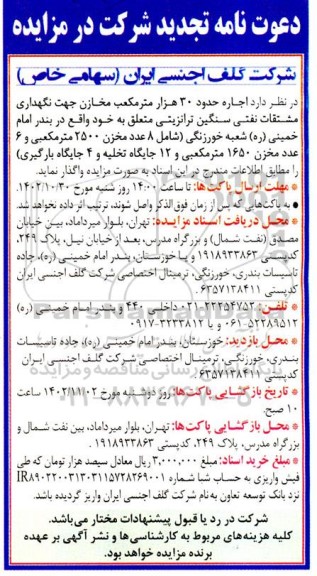 دعوت نامه تجدید شرکت در مزایده
شرکت گلف اجنسی ایران (سهامی خاص)
در نظر دارد اجاره حدود ۳۰ هزار مترمکعب مخازن جهت نگهداری
مشتقات نفتی سنگین ترانزیتی متعلق به خود واقع در بندر امام
خمینی (ره) شعبه خورزنگی (شامل ۸ عدد مخزن ۲۵۰۰ مترمکعبی و ۶
عدد مخزن ۱۶۵۰ مترمکعبی و ۱۲ جایگاه تخلیه و ۴ جایگاه بارگیری)
را مطابق اطلاعات مندرج در این اسناد به صورت مزایده واگذار نماید.
* مهلت ارسال پاکت‌ها: تا ساعت ۱۴:۰۰ روز شنبه مورخ ۱۴۰۲/۱۰/۳۰
● به پاکت‌هایی که پس از زمان فوق الذکر واصل شوند، ترتیب اثر داده نخواهد شد.
* محل دریافت اسناد مزایده: تهران، بلوار میرداماد، بین خیابان
مصدق (نفت شمال) و بزرگراه مدرس، بعد از خیابان نیل، پلاک ۲۴۹،
کدپستی ۱۹۱۸۹۳۳۸۶۳ و یا خوزستان، بندر امام خمینی (ره)، جاده
تاسیسات بندری، خورزنگی، ترمینال اختصاصی شرکت گلف اجنسی ایران
کدپستی ۶۳۵۷۱۳۸۴۱۱.
* تلفن: ۲۲۲۵۴۷۵۲-۰۲۱ داخلی ۴۴۰ و بندر امام خمینی (ره)
۵۲۲۸۹۵۱۲-۰۶۱ و یا ۳۲۳۳۸۱۲-۰۹۱۷
* محل بازدید: خوزستان، بندر امام خمینی (ره)، جاده تاسیسات
بندری، خورزنگی، ترمینال اختصاصی شرکت گلف اجنسی ایران
کدپستی ۶۳۵۷۱۳۸۴۱۱
* تاریخ بازگشایی پاکت‌ها: روز دوشنبه مورخ ۱۴۰۲/۱۱/۰۲ ساعت
۱۰ صبح.
* محل بازگشایی پاکت‌ها: تهران، بلوار میرداماد، بین نفت شمال و
بزرگراه مدرس، پلاک ۲۴۹، کدپستی ۱۹۱۸۹۳۳۸۶۳.
* مبلغ خرید اسناد: مبلغ ۳,۰۰۰,۰۰۰ ریال معادل سیصد هزار تومان که طی
فیش واریزی به حساب شبا شماره IR۸۹۰۲۲۰۰۳۱۳۰۳۱۱۵۷۲۸۲۶۹۰۰۱
نزد بانک توسعه تعاون به نام شرکت گلف اجنسی ایران واریز گردیده باشد.
شرکت در رد یا قبول پیشنهادات مختار می‌باشد.
کلیه هزینه‌های مربوط به کارشناسی‌ها و نشر آگهی بر عهده
برنده مزایده خواهد بود.